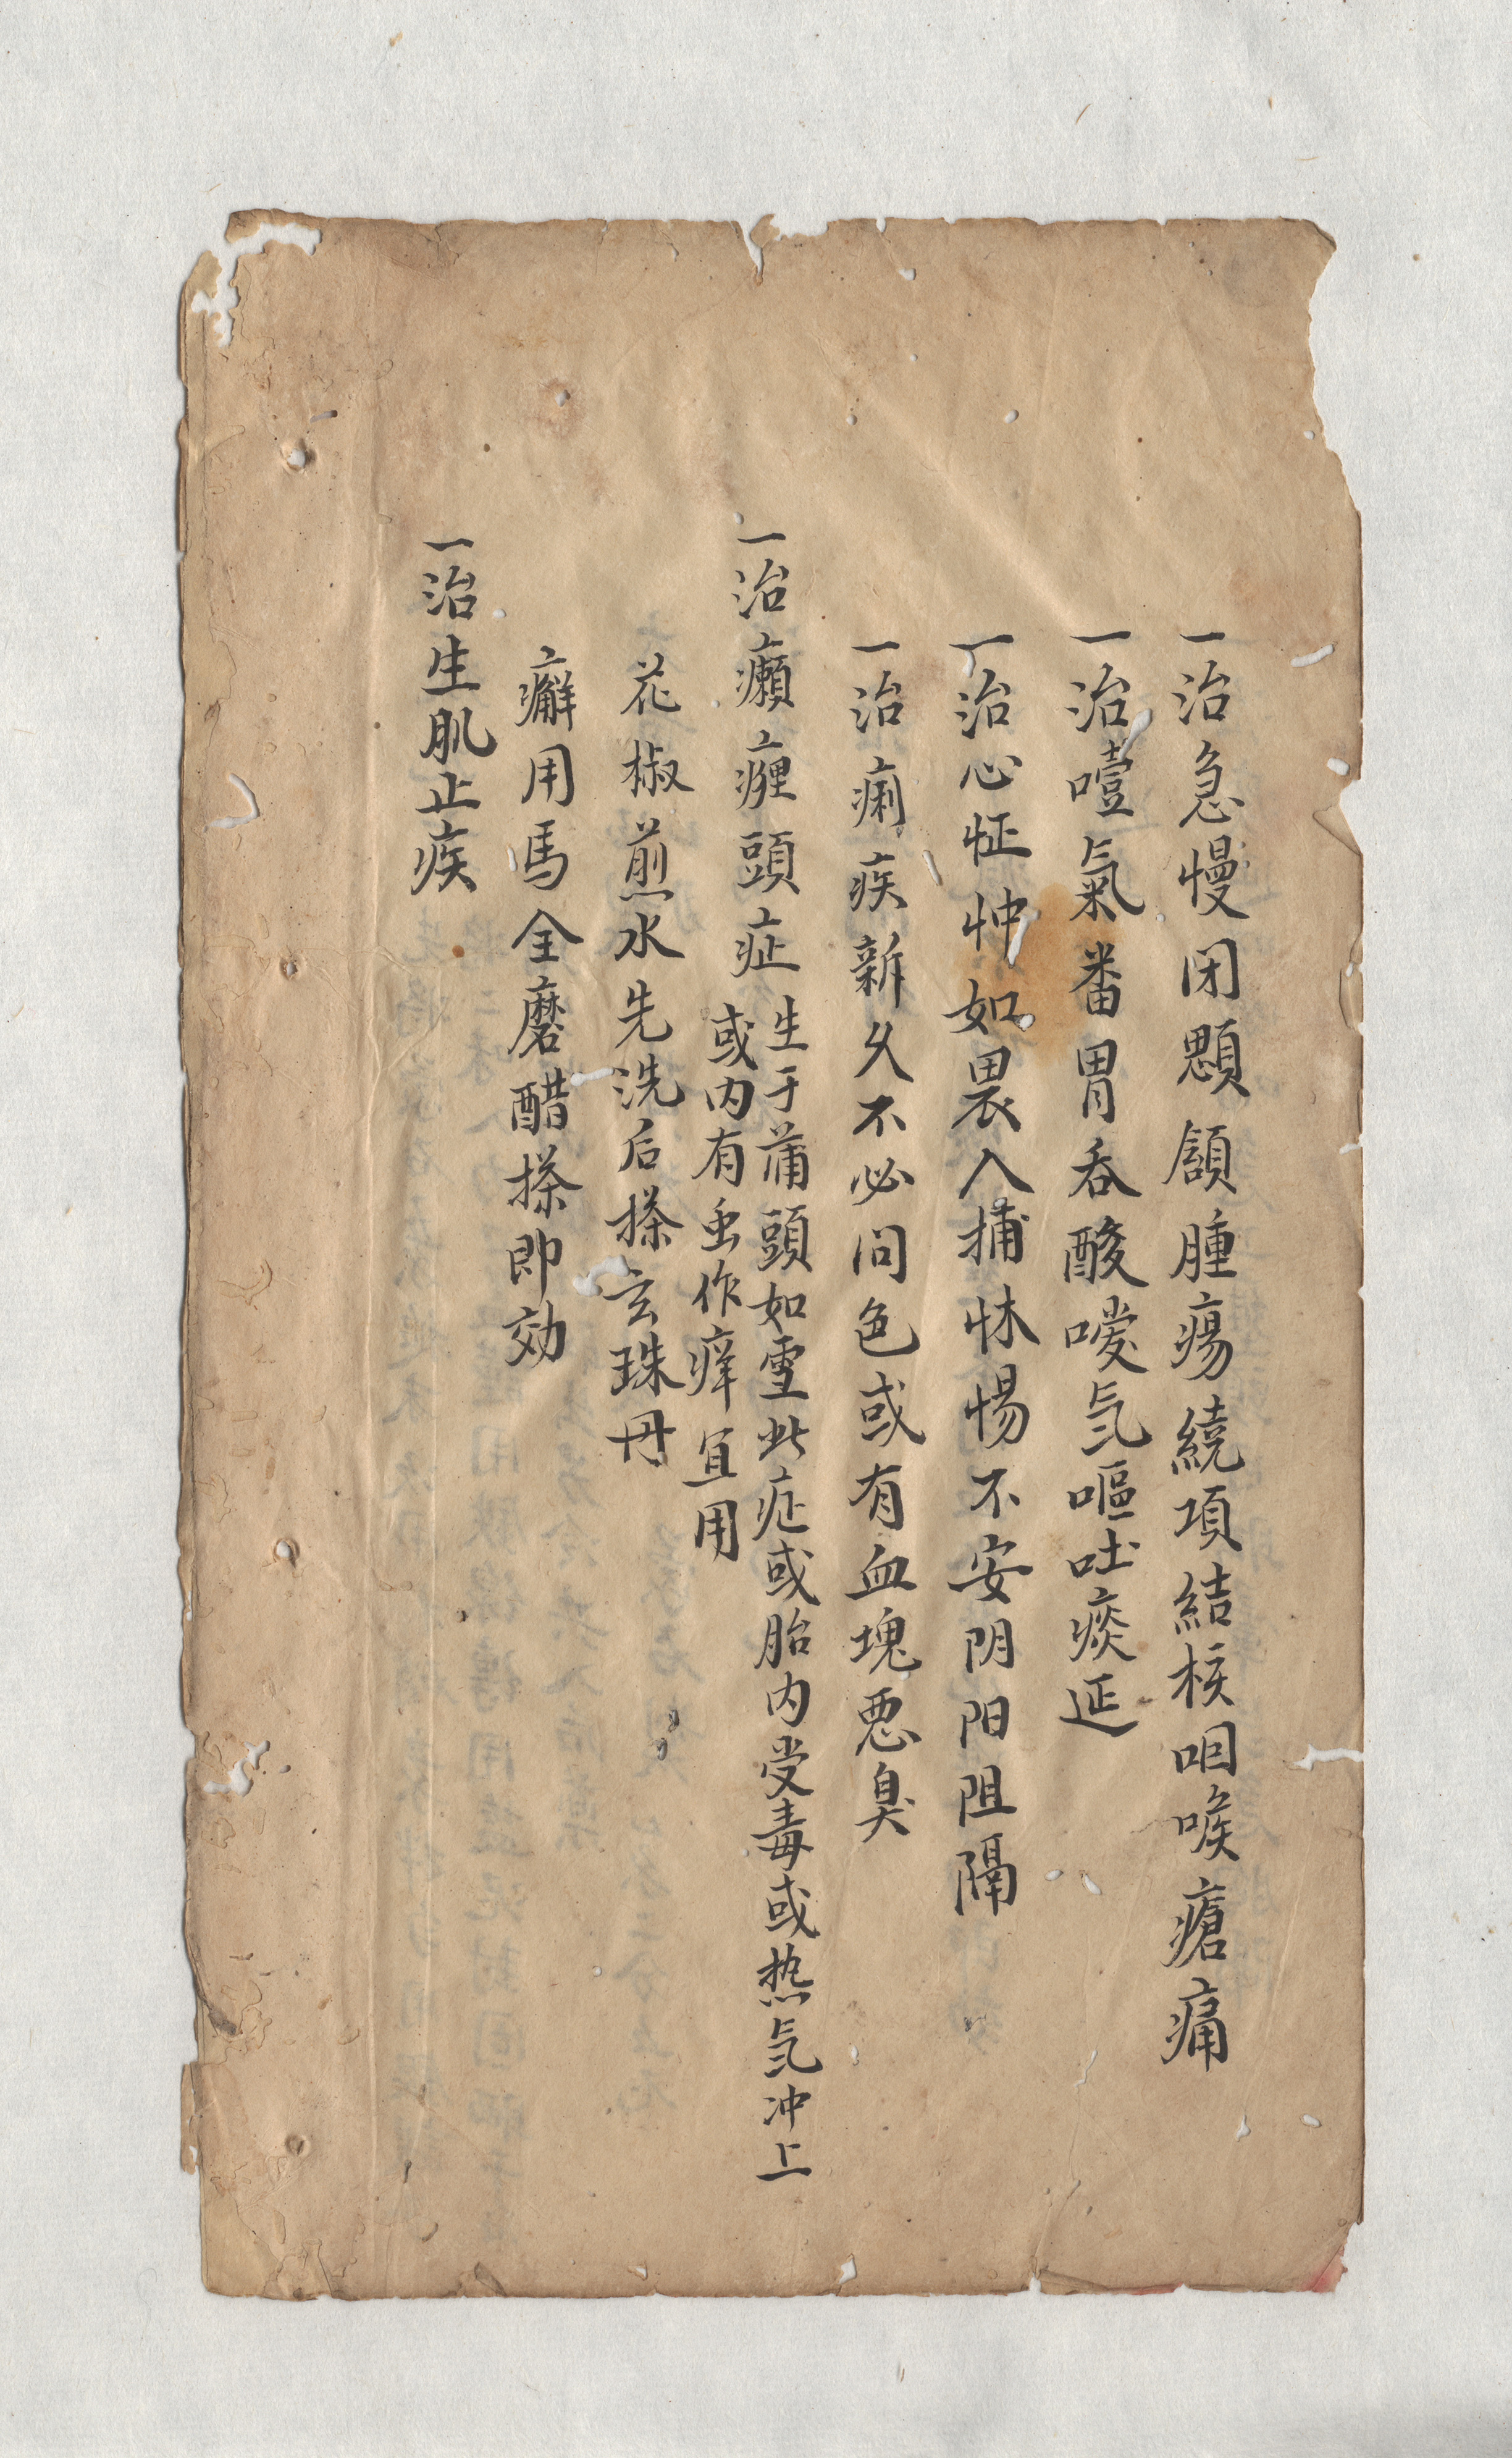 一治急慢闭顋頷腫瘍繞項結核咽喉瘡痛
一治噎氣番胃吞酸噯气嘔吐痰延
一治心怔忡如畏人捕怵惕不安阴阳阻隔
一治痢疾新久不必问色或有血塊悪臭
一治癩瘽頭症
生于蒲頭如雪此症或胎内受毒或热气冲上
或内有虫作癢宜用
花椒煎水先洗后搽玄珠丹
癬用馬全磨醋搽即効
一治生肌止疾